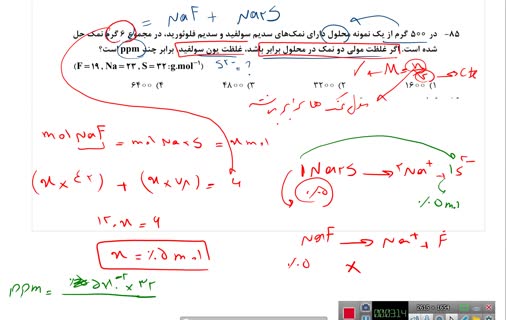 = NaF + Na2S
۸۵- در ۵۰۰ گرم از یک نمونه محلول دارای نمک‌های سدیم سولفید و سدیم فلوئورید، در مجموع ۶ گرم نمک حل
شده است. اگر غلظت مولی دو نمک در محلول برابر باشد، غلظت یون سولفید برابر چند ppm است؟
(F = ۱۹, Na = ۲۳, S = ۳۲ : g.mol⁻¹)
S²⁻ = ?
M = n
۱) ۱۶۰۰
۲) ۳۲۰۰
۳) ۴۸۰۰
۴) ۶۴۰۰
mol NaF = mol Na2S = x mol
(x × ۴۲) + (x × ۷۸) = ۶
۱۲۰x = ۶
x = ۰/۰۵ mol
1Na2S → 2Na⁺ + 1S²⁻
۰/۰۵
۰/۰۵ mol
NaF → Na⁺ + F⁻
۰/۰۵
ppm =
00:03:14
2615 × 1654